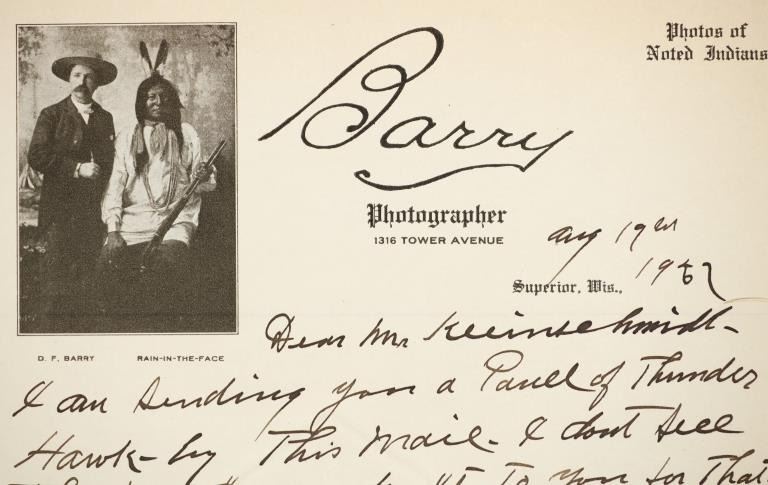 Photos of
Noted Indians
Barry
Photographer
1316 TOWER AVENUE
Aug 19
Superior, Wis.,
D. F. BARRY RAIN-IN-THE-FACE
Dear Mr Kleinschmidt-
I am sending you a Panell of Thunder
Hawk- by This Mail- I dont sell
to you for That